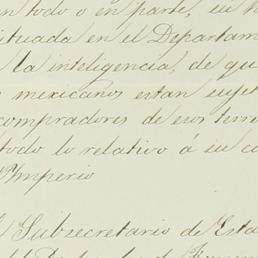 en todo o en parte, su h
situada en el Departam
la inteligencia, de qu
mexicanos estan sujet
compradores de esos terre
todo lo relativo á su co
Imperio
Subsecretario de Esta